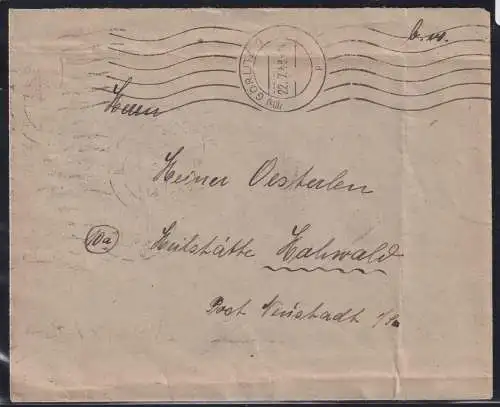 b. w.
GÖRLITZ
22.7.48
Herrn
Heiner Oesterlen
10a
Heilstätte Hohwald
Post Neustadt i/Sa